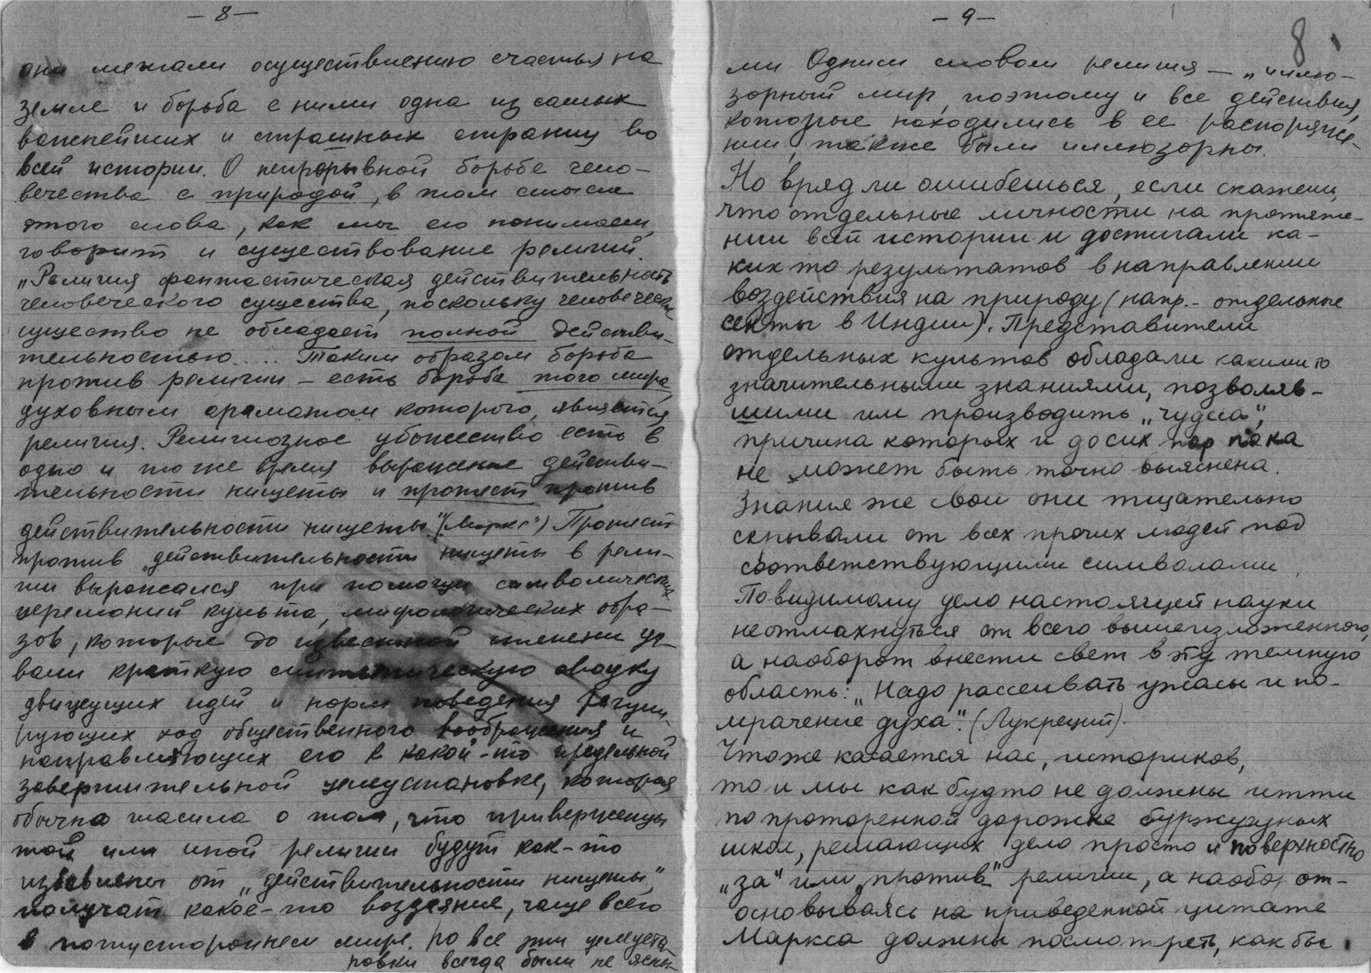 — 8 —
они мешали осуществлению счастья на
земле и борьба с ними одна из самых
важнейших и страшных страниц во
всей истории. О непрерывной борьбе чело-
вечества с природой, в том смысле
этого слова, как мы его понимаем,
говорит и существование религий.
„Религия фантастическая действительность
человеческого существа, поскольку человеческое
существо не обладает полной действи-
тельностью.... Таким образом борьба
против религии – есть борьба того мира,
духовным ароматом которого, является
религия. Религиозное убожество есть в
одно и то же время выражение действи-
тельности нищеты и протест против
действительности нищеты." (Маркс) Протест
против „действительности нищеты в рели-
гии выражался при помощи символических
церемоний культа, мифологических обра-
зов, которые до известной степени да-
вали краткую синтетическую сводку
движущих идей и норм поведения регули-
рующих ход общественного воображения и
направляющих его к какой-то предельной
завершительной целеустановке, которая
обычно гласила о том, что приверженцы
той или иной религии будут как-то
избавлены от „действительности нищеты,"
получат какое-то воздаяние, чаще всего
в потустороннем мире. Но все эти целеуста-
новки всегда были не ясны-
— 9 —
8
ми Одним словом религия — „иллю-
зорный мир, поэтому и все действия,
которые находились в ее распоряже-
нии, также были иллюзорны.
Но вряд ли ошибешься, если скажешь,
что отдельные личности на протяже-
нии всей истории и достигали ка-
ких то результатов в направлении
воздействия на природу (напр. - отдельные
секты в Индии). Представители
отдельных культов обладали какими то
значительными знаниями, позволяв-
шими им производить „чудеса",
причина которых и до сих пор пока
не может быть точно выяснена.
Знания же свои они тщательно
скрывали от всех прочих людей под
соответствующими символами.
Повидимому дело настоящей науки
не отмахнуться от всего вышеизложенного
а наоборот внести свет в эту темную
область: „Надо рассеивать ужасы и по-
мрачение духа". (Лукреций).
Что же касается нас, историков,
то и мы как будто не должны итти
по проторенной дорожке буржуазных
школ, решающих дело просто и поверхностно
„за" или „против" религии, а наоборот-
основываясь на приведенной цитате
Маркса должны посмотреть, как бы